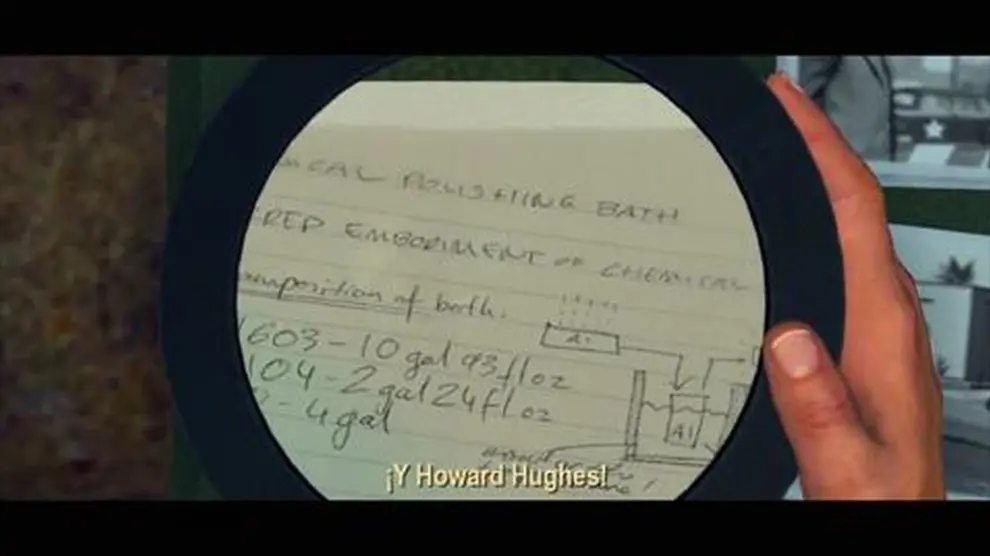 POLISHING BATH
EMBODIMENT OF CHEMICAL
omposition of bath.
Al
603 - 10 gal 93 fl oz
04 - 2 gal 24 fl oz
- 4 gal
Al
¡Y Howard Hughes!